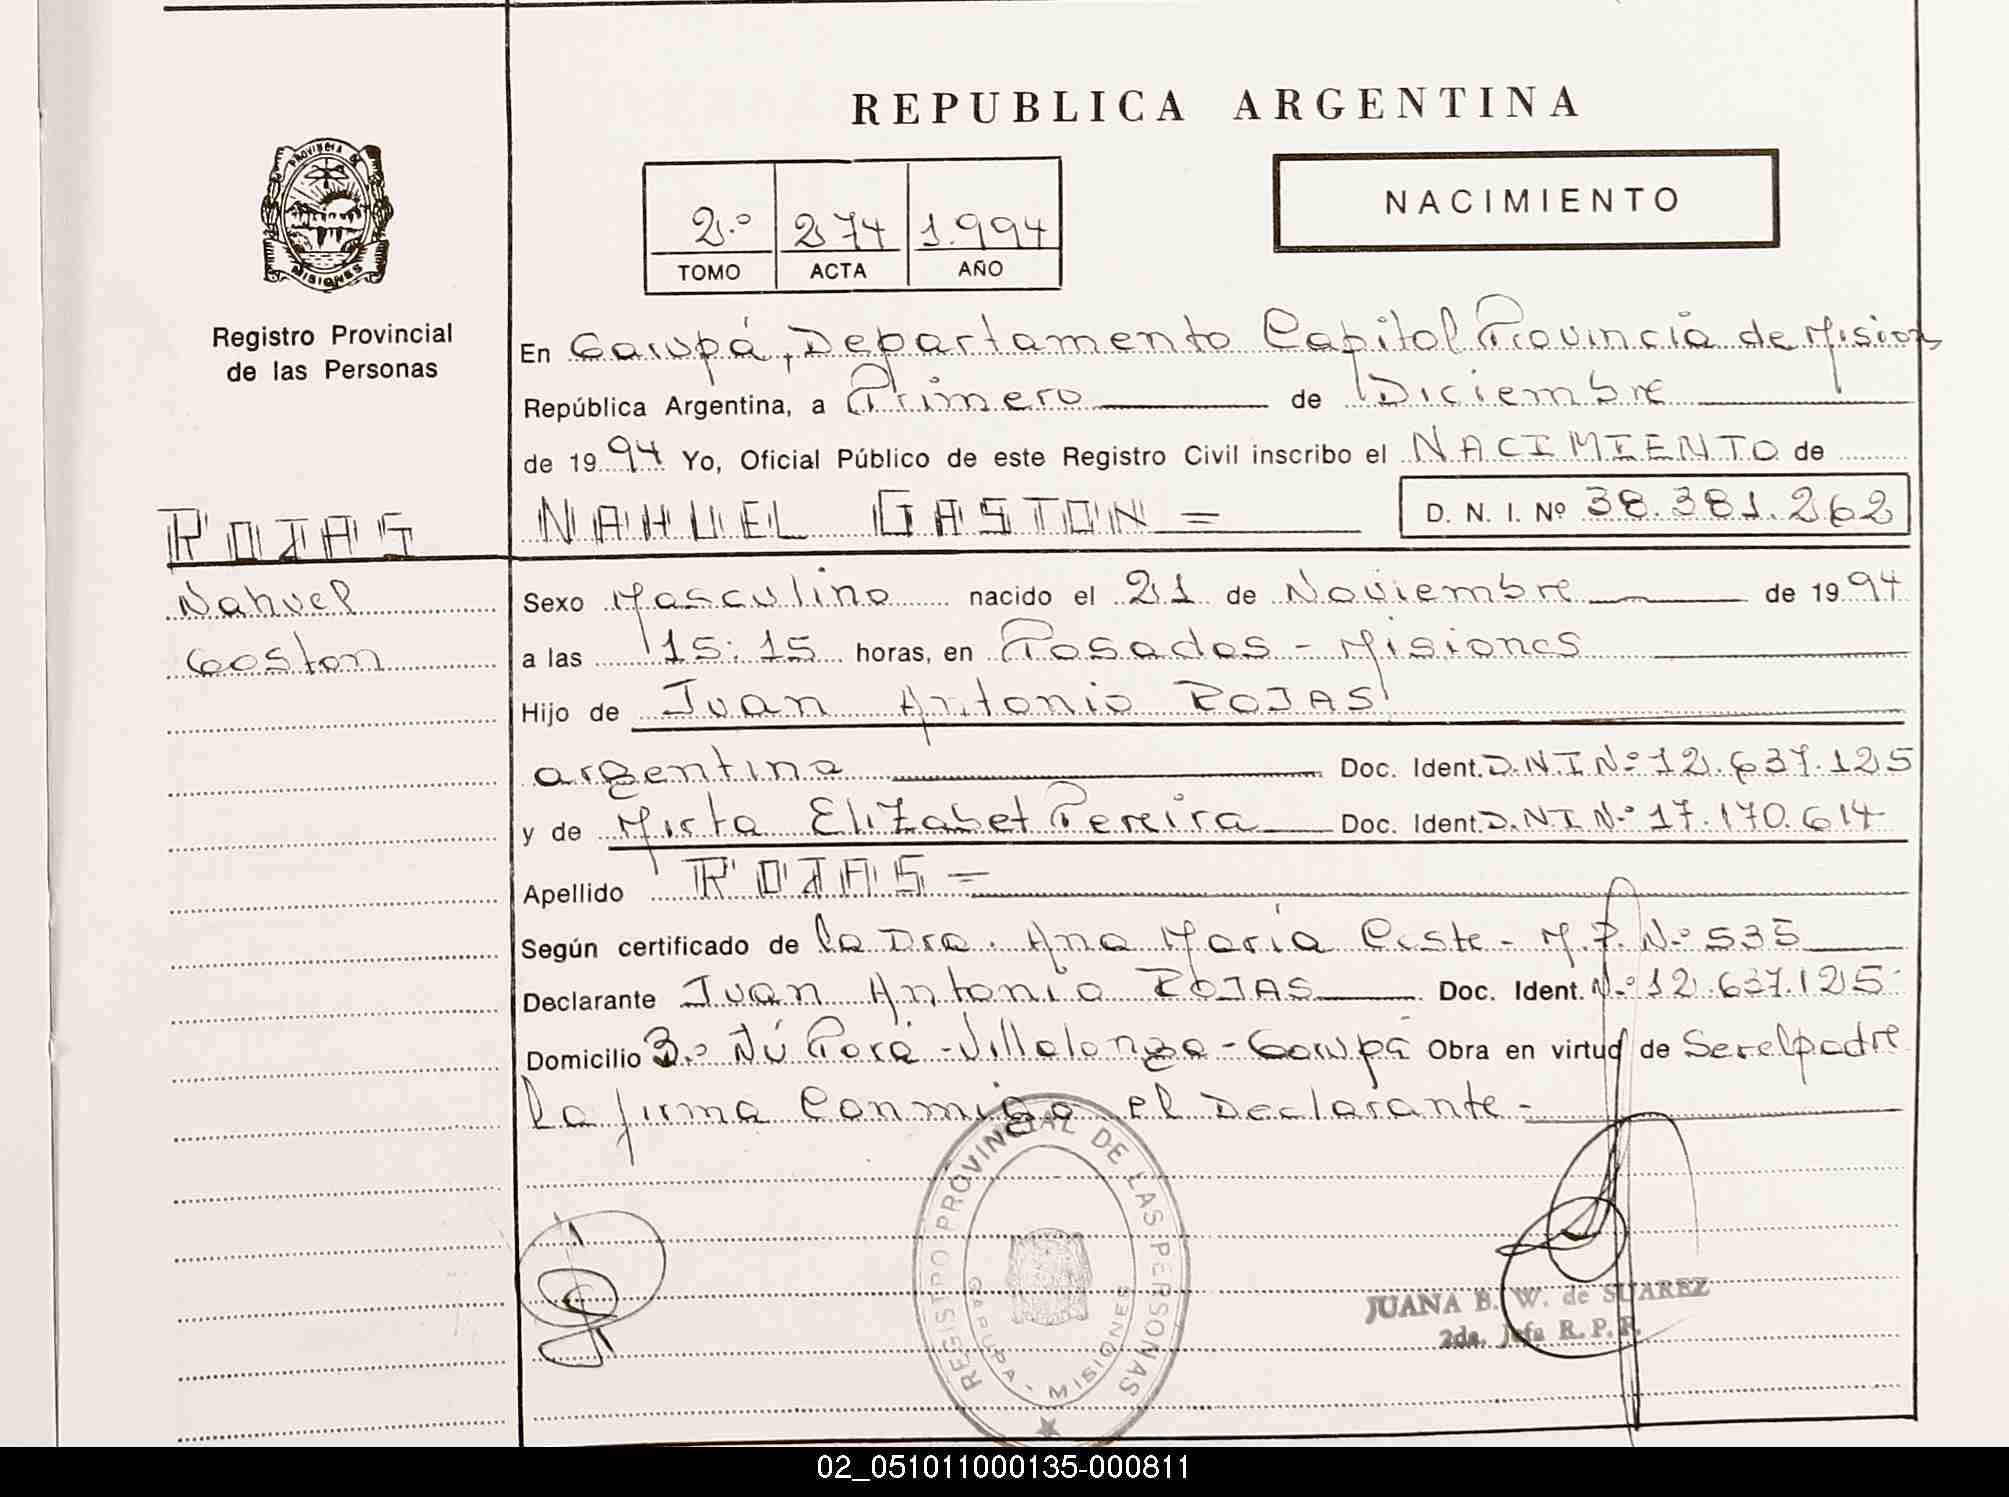 REPUBLICA ARGENTINA
PROVINCIA DE
MISIONES
Registro Provincial
de las Personas
2.º 274 1.994
TOMO ACTA AÑO
NACIMIENTO
En Garupá, Departamento Capital Provincia de Misiones
República Argentina, a Primero de Diciembre
de 1994 Yo, Oficial Público de este Registro Civil inscribo el NACIMIENTO de
ROJAS NAHUEL GASTON = D. N. I. Nº 38.381.262
Nahuel
Gaston
Sexo Masculino nacido el 21 de Noviembre de 1994
a las 15:15 horas, en Posadas - Misiones
Hijo de Juan Antonio ROJAS
argentina Doc. Ident. D.N.I Nº 12.637.125
y de Mirta Elizabet Pereira Doc. Ident. D.N.I Nº 17.170.614
Apellido ROJAS =
Según certificado de la Dra. Ana María - M.P. Nº 535
Declarante Juan Antonio ROJAS Doc. Ident. Nº 12.637.125
Domicilio Bº Ñú Porá - Villalonga - Garupá Obra en virtud de Ser el padre
la firma Conmigo el Declarante -
REGISTRO PROVINCIAL DE LAS PERSONAS
GARUPA - MISIONES
JUANA B. W. de SUAREZ
2da. Jefa R. P. P.
02_051011000135-000811